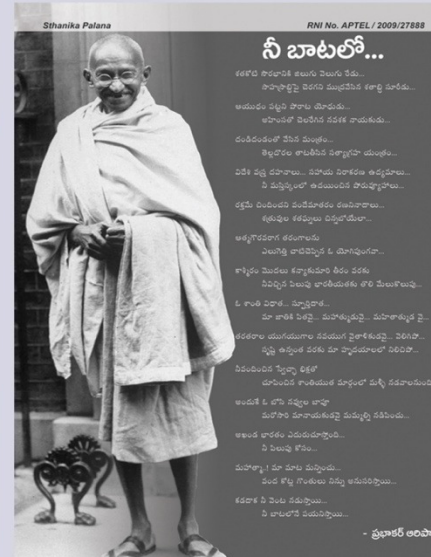 Sthanika Palana
RNI No. APTEL / 2009/27888
నీ బాటలో...
శతకోటి సౌరభానికి జిలుగు వెలుగు నేడు...
సాహస్రాబ్దిపై చెరగని ముద్రవేసిన శతాబ్ది సూరీడు...
ఆయుధం పట్టని పోరాట యోధుడు...
అహింసతో చెలరేగిన నవశక నాయకుడు...
దండిదండంతో వేసిన మంత్రం...
తెల్లదొరల తాటతీసిన సత్యాగ్రహ యంత్రం...
విదేశీ వస్త్ర దహనాలు... సహాయ నిరాకరణ ఉద్యమాలు...
నీ మస్తిష్కంలో ఉదయించిన పోరువ్యూహాలు...
రక్తమే చిందించని వందేమాతరం రణనినాదాలు...
శత్రువుల శతఘ్నులు చిన్నబోయేలా...
ఆత్మగౌరవరాగ తరంగాలను
ఎలుగెత్తి చాటిచెప్పిన ఓ యోగిపుంగవా...
కాశ్మీరం మొదలు కన్యాకుమారి తీరం వరకు
నీవిచ్చిన పిలుపు భారతీయతకు తొలి మేలుకొలుపు...
ఓ శాంతి విధాత... స్ఫూర్తిదాత...
మా జాతికి పితవై... మహాత్ముడువై... మహితాత్ముడ వై...
తరతరాల యుగయుగాల నవయుగ వైతాళికుడవై... వెలిగిపో...
సృష్టి ఉన్నంత వరకు మా హృదయాలలో నిలిచిపో...
నీవందించిన స్వేచ్ఛా భిక్షతో
చూపించిన శాంతియుత మార్గంలో మళ్ళీ నడవాలనుంది
అందుకే ఓ బోసి నవ్వుల బాపూ
మరోసారి మానాయకుడవై మమ్మల్ని నడిపించు...
అఖండ భారతం ఎదురుచూస్తోంది...
నీ పిలుపు కోసం...
మహాత్మా..! మా మాట మన్నించు...
వంద కోట్ల గొంతులు నిన్ను అనుసరిస్తాయి...
కడదాక నీ వెంట నడుస్తాయి...
నీ బాటలోనే పయనిస్తాయి...
- ప్రభాకర్ ఆరిపా